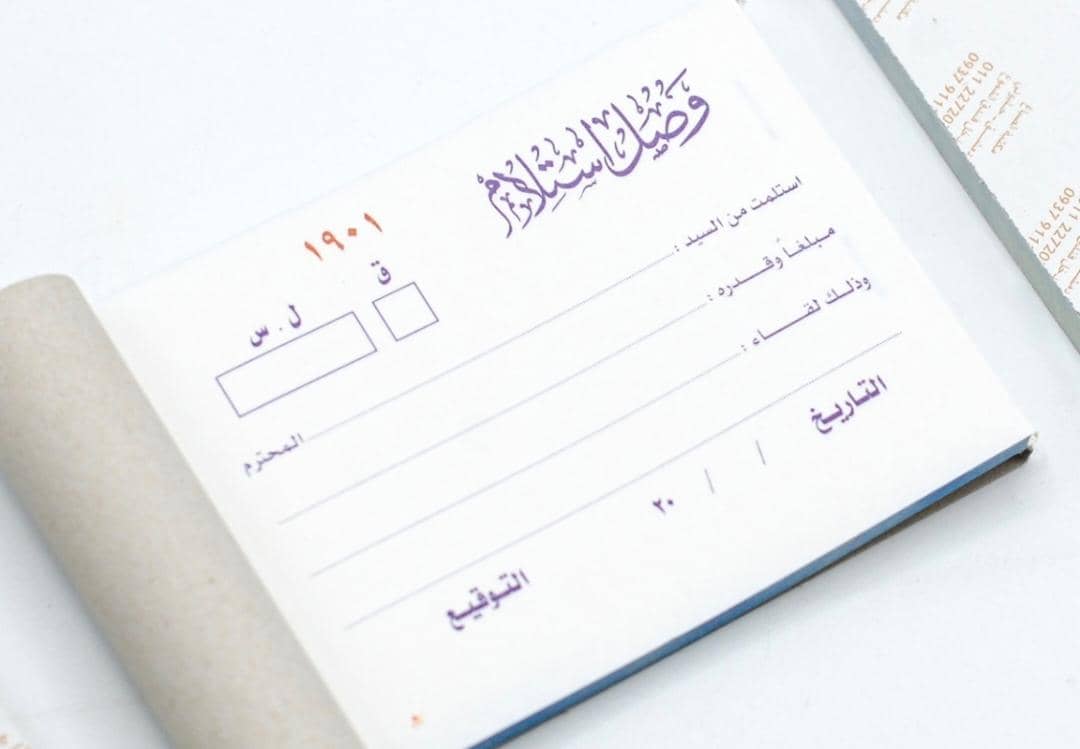 وصل استلام
١٩٠١
ق
ل . س
استلمت من السيد : المحترم
مبلغاً وقدره :
وذلك لقاء :
التاريخ / / ٢٠
التوقيع
011 22720
0937 911
011 22720
0937 911